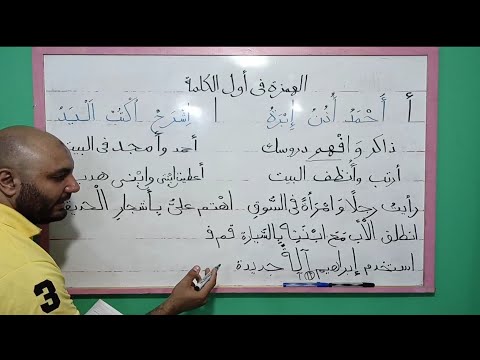 الهمزة فى أول الكلمة
أ أَحْمَدُ أُذُنُ إِبْرَةُ ا اِشْرَحْ اُكْتُبْ الْيَدُ
ذاكر وَافْهم دروسك أحمد وأمجد فى البيت
أرتب وأُنظف البيت
رأيت رجلًا وَامْرَأَةً فى السُّوق اهتم علىٌّ بِأَشجارِ
انطلق الْأَبُ مَعَ ابْنَتِهِ بِالسَّيارة
استخدم إبراهيم آلَةً جديدة
3